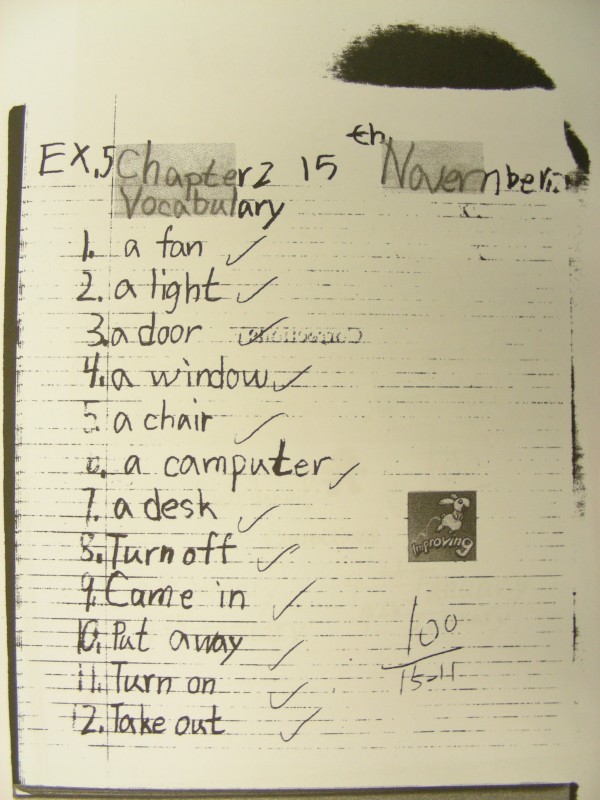 EX.5 Chapter 2 15th November
Vocabulary
1. a fan
2. a light
3. a door
4. a window
5. a chair
6. a camputer
7. a desk
8. Turn off
Improving
9. Came in
10. Put away
100
11. Turn on
15-11
12. Take out